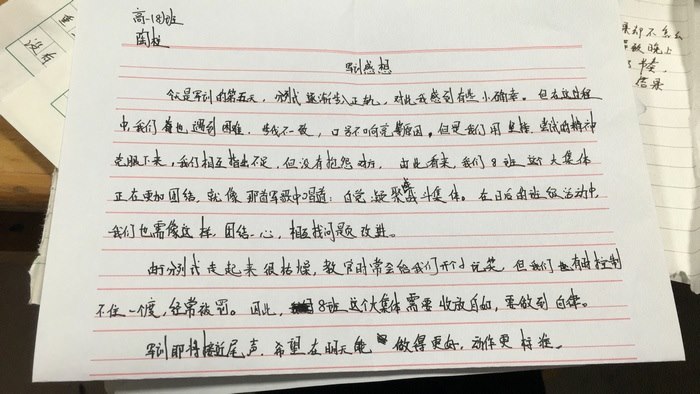 高一(8)班
陶
军训感想
今天是军训的第五天，分列式逐渐步入正轨，对此我感到有些小确幸。但在这过程
中，我们曾也遇到困难，步伐不一致，口号不响亮等原因。但是我们用坚持、尝试的精神
克服下来，我们相互指出不足，但没有抱怨对方，由此看来，我们8班这个大集体
正在更加团结，就像那首军歌中唱道：自觉凝聚成战斗集体。在日后的班级活动中，
我们也需像这样，团结一心，相互找问题及改进。
由于分列式走起来很枯燥，教官时常会给我们开个小玩笑，但我们也有时控制
不住一个度，经常被罚。因此，8班这个大集体需要收放自如，要做到自律。
军训即将接近尾声，希望在明天能做得更好，动作更标准。
没有
果却不怎么
晚上
结果